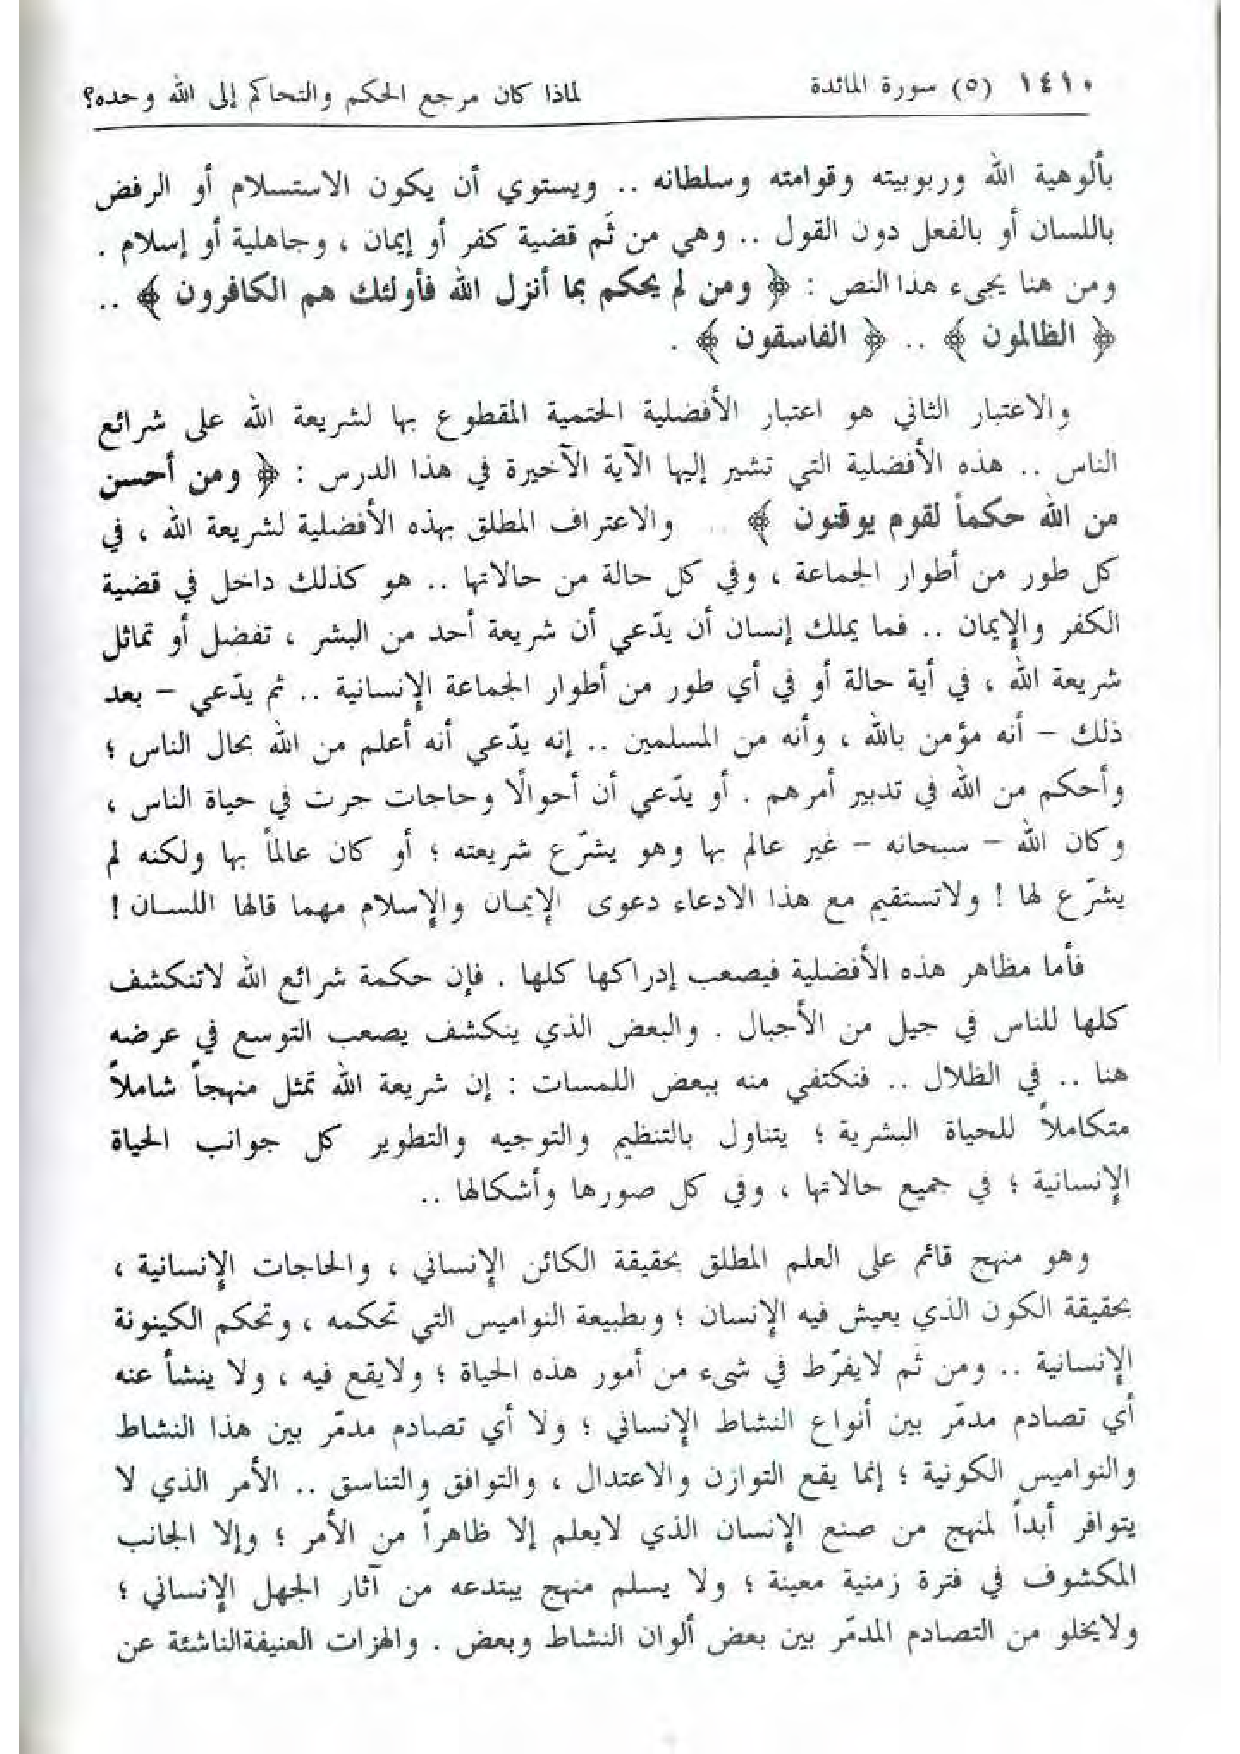 ١٤١٠ (٥) سورة المائدة لماذا كان مرجع الحكم والتحاكم إلى الله وحده؟
بألوهية الله وربوبيته وقوامته وسلطانه .. ويستوي أن يكون الاستسلام أو الرفض
باللسان أو بالفعل دون القول .. وهي من ثَم قضية كفر أو إيمان ، وجاهلية أو إسلام .
ومن هنا يجىء هذا النص : ﴿ ومن لم يحكم بما أنزل الله فأولئك هم الكافرون ﴾ ..
﴿ الظالمون ﴾ .. ﴿ الفاسقون ﴾ .
والاعتبار الثاني هو اعتبار الأفضلية الحتمية المقطوع بها لشريعة الله على شرائع
الناس .. هذه الأفضلية التي تشير إليها الآية الآخيرة في هذا الدرس : ﴿ ومن أحسن
من الله حكماً لقوم يوقنون ﴾ .. والاعتراف المطلق بهذه الأفضلية لشريعة الله ، في
كل طور من أطوار الجماعة ، وفي كل حالة من حالاتها .. هو كذلك داخل في قضية
الكفر والإيمان .. فما يملك إنسان أن يدّعي أن شريعة أحد من البشر ، تفضل أو تماثل
شريعة الله ، في أية حالة أو في أي طور من أطوار الجماعة الإنسانية .. ثم يدّعي – بعد
ذلك – أنه مؤمن بالله ، وأنه من المسلمين .. إنه يدّعي أنه أعلم من الله بحال الناس ؛
وأحكم من الله في تدبير أمرهم . أو يدّعي أن أحوالًا وحاجات جرت في حياة الناس ،
وكان الله – سبحانه – غير عالم بها وهو يشرّع شريعته ؛ أو كان عالماً بها ولكنه لم
يشرّع لها ! ولاتستقيم مع هذا الادعاء دعوى الإيمان والإسلام مهما قالها اللسان !
فأما مظاهر هذه الأفضلية فيصعب إدراكها كلها . فإن حكمة شرائع الله لاتنكشف
كلها للناس في جيل من الأجيال . والبعض الذي ينكشف يصعب التوسع في عرضه
هنا .. في الظلال .. فنكتفي منه ببعض اللمسات : إن شريعة الله تمثل منهجاً شاملاً
متكاملاً للحياة البشرية ؛ يتناول بالتنظيم والتوجيه والتطوير كل جوانب الحياة
الإنسانية ؛ في جميع حالاتها ، وفي كل صورها وأشكالها ..
وهو منهج قائم على العلم المطلق بحقيقة الكائن الإنساني ، والحاجات الإنسانية ،
بحقيقة الكون الذي يعيش فيه الإنسان ؛ وبطبيعة النواميس التي تحكمه ، وتحكم الكينونة
الإنسانية .. ومن ثَم لايفرّط في شىء من أمور هذه الحياة ؛ ولايقع فيه ، ولا ينشأ عنه
أي تصادم مدمّر بين أنواع النشاط الإنساني ؛ ولا أي تصادم مدمّر بين هذا النشاط
والنواميس الكونية ؛ إنما يقع التوازن والاعتدال ، والتوافق والتناسق .. الأمر الذي لا
يتوافر أبداً لمنهج من صنع الإنسان الذي لايعلم إلا ظاهراً من الأمر ؛ وإلا الجانب
المكشوف في فترة زمنية معينة ؛ ولا يسلم منهج يبتدعه من آثار الجهل الإنساني ؛
ولايخلو من التصادم المدمّر بين بعض ألوان النشاط وبعض . والهزات العنيفة الناشئة عن